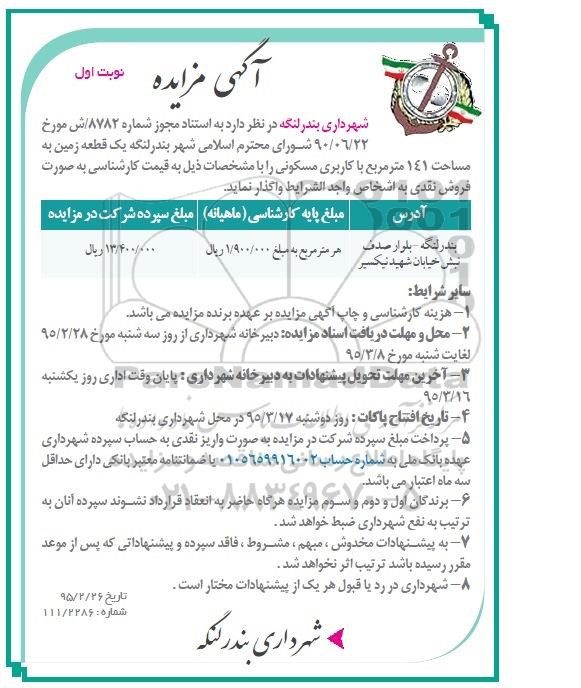 آگهی مزایده
نوبت اول
شهرداری بندرلنگه در نظر دارد به استناد مجوز شماره ۸۷۸۲/ش مورخ
۹۰/۰۶/۲۲ شورای محترم اسلامی شهر بندرلنگه یک قطعه زمین به
مساحت ۱۴۱ مترمربع با کاربری مسکونی را با مشخصات ذیل به قیمت کارشناسی به صورت
فروش نقدی به اشخاص واجد الشرایط واگذار نماید.
آدرس مبلغ پایه کارشناسی (ماهیانه) مبلغ سپرده شرکت در مزایده
بندرلنگه - بلوار صدف هر مترمربع به مبلغ ۱/۹۰۰/۰۰۰ ریال ۱۳/۴۰۰/۰۰۰ ریال
نبش خیابان شهید نیکسیر
سایر شرایط:
۱- هزینه کارشناسی و چاپ آگهی مزایده بر عهده برنده مزایده می باشد.
۲- محل و مهلت دریافت اسناد مزایده: دبیرخانه شهرداری از روز سه شنبه مورخ ۹۵/۲/۲۸
لغایت شنبه مورخ ۹۵/۳/۸
۳- آخرین مهلت تحویل پیشنهادات به دبیرخانه شهرداری : پایان وقت اداری روز یکشنبه
۹۵/۳/۱۶
۴- تاریخ افتتاح پاکات : روز دوشنبه ۹۵/۳/۱۷ در محل شهرداری بندرلنگه
۵- پرداخت مبلغ سپرده شرکت در مزایده به صورت واریز نقدی به حساب سپرده شهرداری
عهده بانک ملی به شماره حساب ۰۱۰۵۶۵۹۹۱۶۰۰۲ یا ضمانتنامه معتبر بانکی دارای حداقل
سه ماه اعتبار می باشد.
۶- برندگان اول و دوم و سوم مزایده هرگاه حاضر به انعقاد قرارداد نشوند سپرده آنان به
ترتیب به نفع شهرداری ضبط خواهد شد .
۷- به پیشنهادات مخدوش ، مبهم ، مشروط ، فاقد سپرده و پیشنهاداتی که پس از موعد
مقرر رسیده باشد ترتیب اثر نخواهد شد .
۸- شهرداری در رد یا قبول هر یک از پیشنهادات مختار است .
تاریخ ۹۵/۲/۲۶
شماره : ۱۱۱/۲۲۸۶
شهرداری بندرلنگه
۰۲۱-۸۸۳۴۹۶۷۰-۵